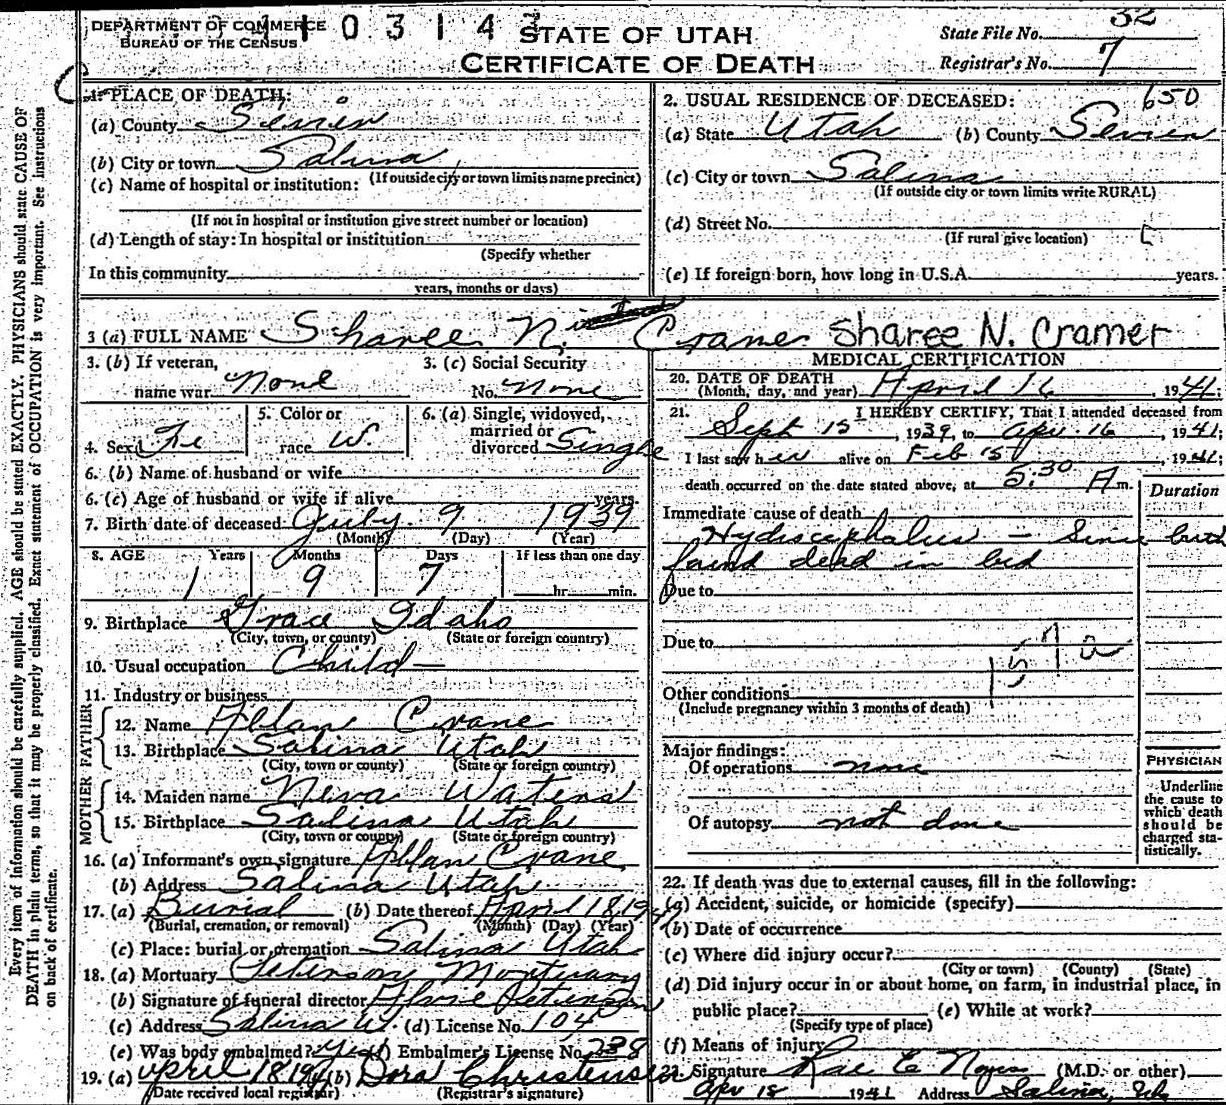 DEPARTMENT OF COMMERCE
BUREAU OF THE CENSUS
0 3 1 4 3
STATE OF UTAH
CERTIFICATE OF DEATH
State File No. 32
Registrar's No. 7
Every item of information should be carefully supplied. AGE should be stated EXACTLY. PHYSICIANS should state CAUSE OF
DEATH in plain terms, so that it may be properly classified. Exact statement of OCCUPATION is very important. See instructions
on back of certificate.
1. PLACE OF DEATH:
(a) County Sevier
(b) City or town Salina
(If outside city or town limits name precinct)
(c) Name of hospital or institution:
(If not in hospital or institution give street number or location)
(d) Length of stay: In hospital or institution
(Specify whether
In this community
years, months or days)
2. USUAL RESIDENCE OF DECEASED: 650
(a) State Utah (b) County Sevier
(c) City or town Salina
(If outside city or town limits write RURAL)
(d) Street No.
(If rural give location)
(e) If foreign born, how long in U.S.A. years.
3 (a) FULL NAME Sharee N. Cramer Sharee N. Cramer
3. (b) If veteran,
name war None
3. (c) Social Security
No. none
4. Sex Fe
5. Color or
race W.
6. (a) Single, widowed,
married or
divorced Single
6. (b) Name of husband or wife
6. (c) Age of husband or wife if alive years.
7. Birth date of deceased July 9 1939
(Month) (Day) (Year)
8. AGE Years Months Days If less than one day
1 9 7 hr. min.
9. Birthplace Grace Idaho
(City, town, or county) (State or foreign country)
10. Usual occupation Child
11. Industry or business
FATHER
12. Name Ablan Crane
13. Birthplace Salina Utah
(City, town or county) (State or foreign country)
MOTHER
14. Maiden name Neva Waters
15. Birthplace Salina Utah
(City, town or county) (State or foreign country)
16. (a) Informant's own signature Ablan Crane
(b) Address Salina Utah
17. (a) Burial (b) Date thereof April 18, 1941
(Burial, cremation, or removal) (Month) (Day) (Year)
(c) Place: burial or cremation Salina Utah
18. (a) Mortuary Peterson Mortuary
(b) Signature of funeral director Peterson
(c) Address Salina U. (d) License No. 104
(e) Was body embalmed? yes (f) Embalmer's License No. 238
19. (a) April 18 1941 (b) Dora Christensen
(Date received local registrar) (Registrar's signature)
MEDICAL CERTIFICATION
20. DATE OF DEATH
(Month, day, and year) April 16, 1941;
21. I HEREBY CERTIFY, That I attended deceased from
Sept 15, 1939, to Apr. 16, 1941;
I last saw her alive on Feb 15, 1941;
death occurred on the date stated above, at 5:30 A m.
Duration
Immediate cause of death
Hydrocephalus - Since birth
found dead in bed
Due to
Due to
157a
Other conditions
(Include pregnancy within 3 months of death)
Major findings:
Of operations none
Of autopsy not done
PHYSICIAN
Underline
the cause to
which death
should be
charged sta-
tistically.
22. If death was due to external causes, fill in the following:
(a) Accident, suicide, or homicide (specify)
(b) Date of occurrence
(c) Where did injury occur?
(City or town) (County) (State)
(d) Did injury occur in or about home, on farm, in industrial place, in
public place? (e) While at work?
(Specify type of place)
(f) Means of injury
23. Signature Rae E Noyes (M.D. or other)
Apr 18 1941 Address Salina, Utah